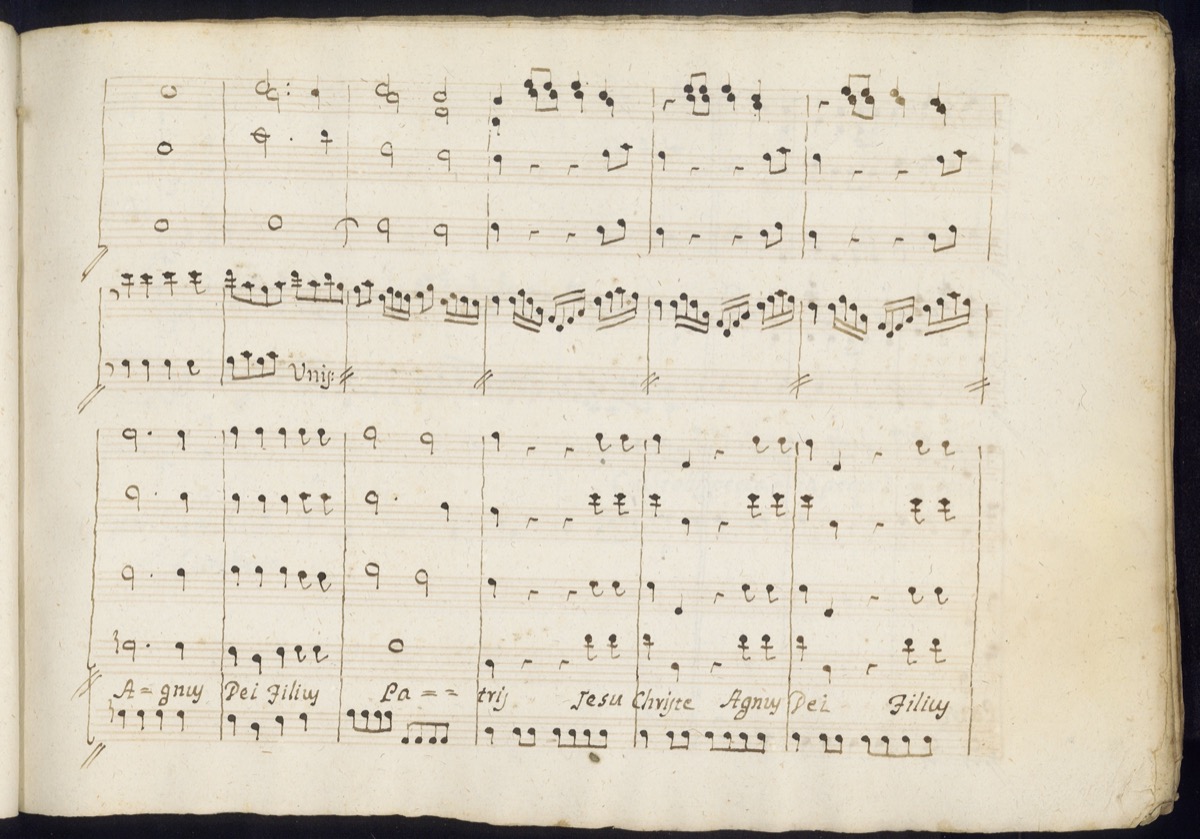 Unis:
A = gnus Dei Filius Pa = = tris Jesu Christe Agnus Dei Filius